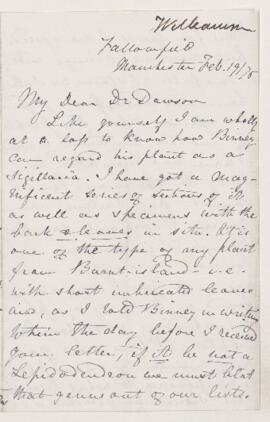 Williamson
Fallowfield
Manchester Feb. 19/70
My Dear Dr Dawson
Like yourself I am wholly
at a loss to know how Binney
can regard his plant as a
Sigillaria. I have got a mag-
nificent series of sections of it
as well as specimens with the
bark & leaves in situ. It is
one of the type of my plant
from Burntisland - i.e.
with short imbricated leaves
and, as I told Binney in writing
to him the day before I received
your letter, if it be not a
Lepidodendron we must blot
that genus out of our lists.